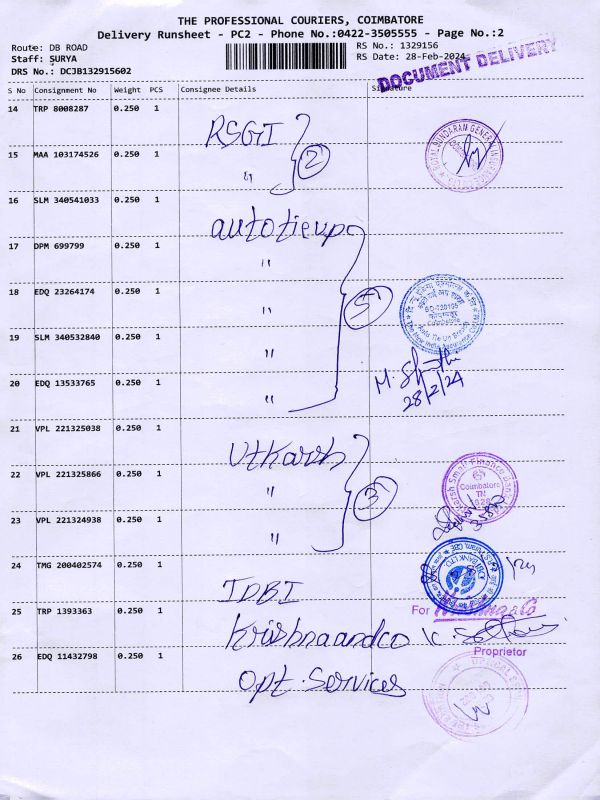 THE PROFESSIONAL COURIERS, COIMBATORE
Delivery Runsheet - PC2 - Phone No.:0422-3505555 - Page No.:2
Route: DB ROAD
RS No.: 1329156
Staff: SURYA
RS Date: 28-Feb-2024
DRS No.: DCJB132915602
DOCUMENT DELIVERY
S No Consignment No Weight PCS Consignee Details Signature
14 TRP 8008287 0.250 1 RSGI
15 MAA 103174526 0.250 1 " 2
16 SLM 340541033 0.250 1 autotieup
17 DPM 699799 0.250 1 "
18 EDQ 23264174 0.250 1 " 5
19 SLM 340532840 0.250 1 "
20 EDQ 13533765 0.250 1 "
28/2/24
21 VPL 221325038 0.250 1 Utkarsh
22 VPL 221325866 0.250 1 " 3
Coimbatore
TN
23 VPL 221324938 0.250 1 "
24 TMG 200402574 0.250 1 IDBI
25 TRP 1393363 0.250 1 Krishnaandco
For
Proprietor
26 EDQ 11432798 0.250 1 Opt. Services